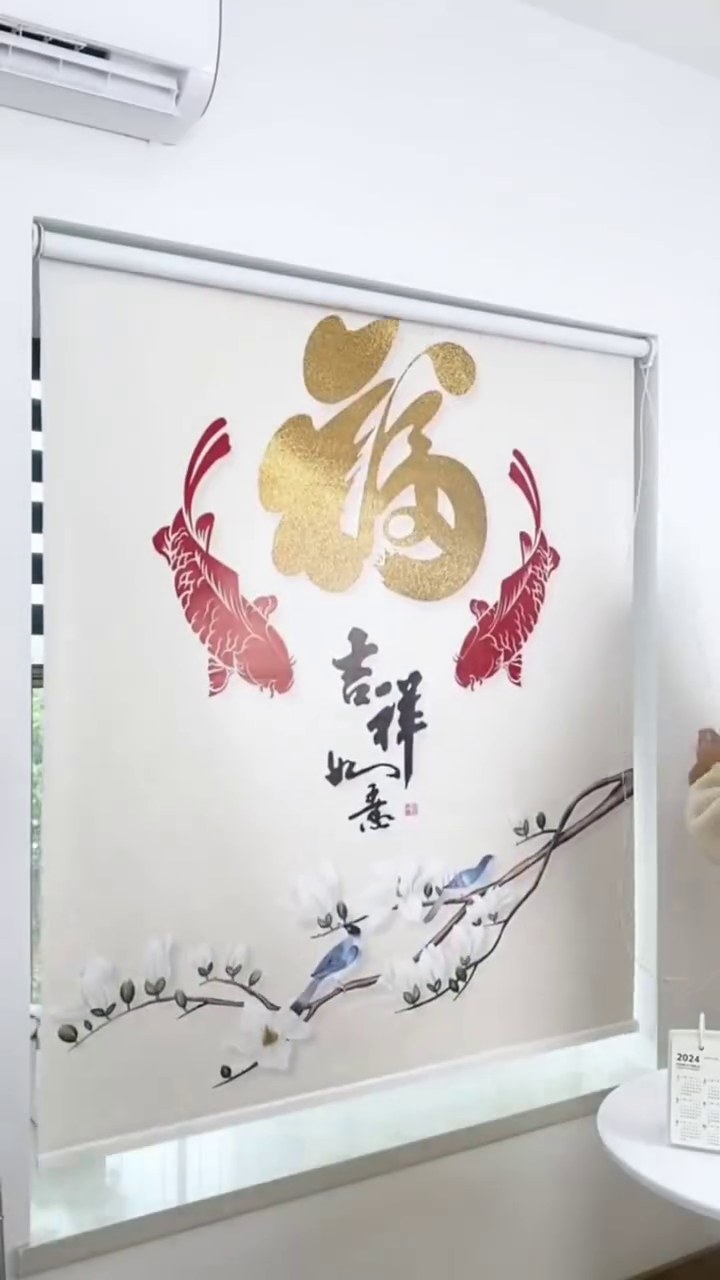 福
吉
祥
如
意
2024